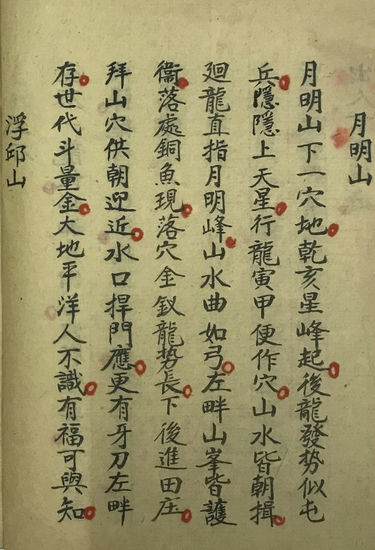 月明山
月明山下一穴地乾亥星峰起後龍發勢似屯
兵隱隱上天星行龍寅甲便作穴山水皆朝揖
廻龍直指月明峰山水曲如弓左畔山峯皆護
衞落處銅魚現落穴金釵龍勢長下後進田庄
拜山穴供朝迎近水口捍門應更有牙刀左畔
存世代斗量金大地平洋人不識有福可與知
浮邱山